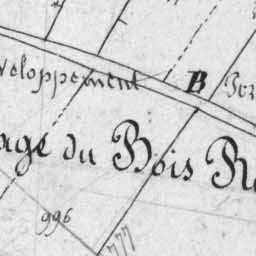 veloppement B
age du Bois R
996
777